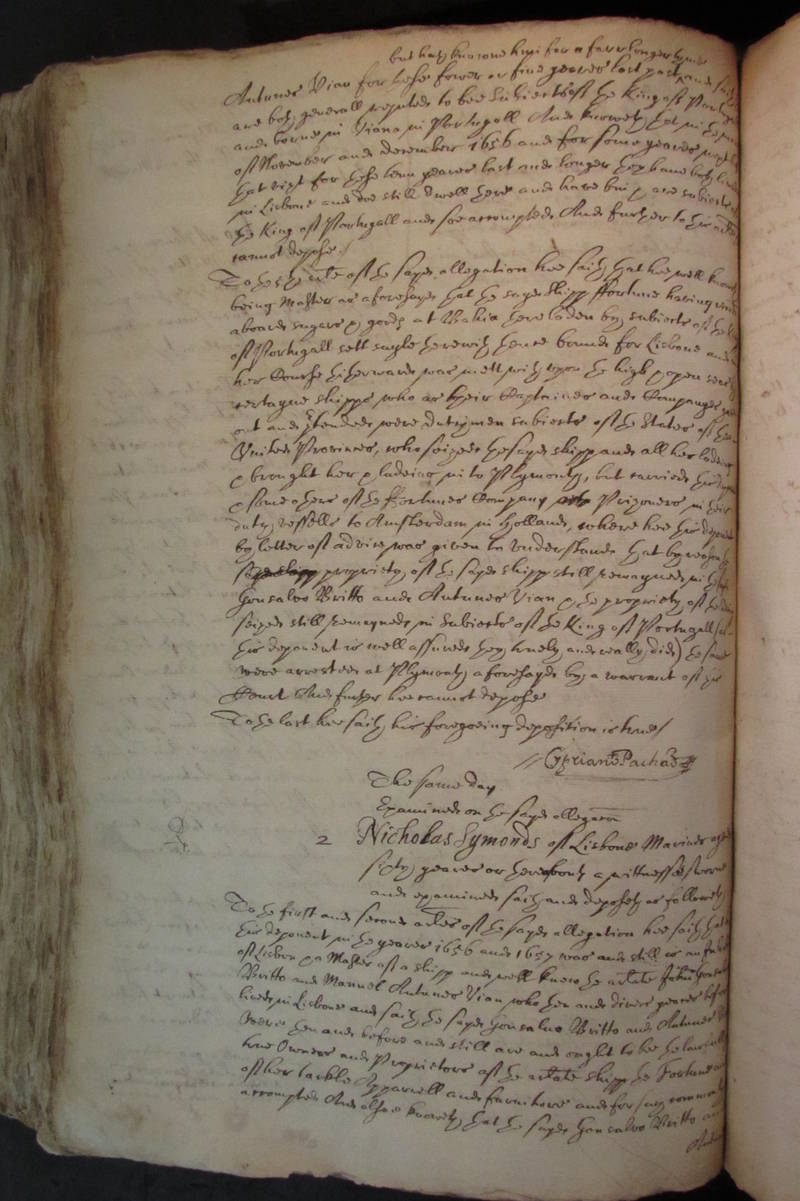 but hath knowne him for a farr longer tyme
Antunes Vian for these fower or five yeares last past, and
are both generall reputed to bee Subiects of the King of
and borne in Viana in Portugall And knoweth that in the
of November and december 1656 and for some yeares
that sixt for these tenn yeares last and longer they have both
in Lisbone and doe still dwell there and have bin & are subiects
the King of Portugall and soe accompted. And further to this
cannot depose./
To the the of the sayd allegation hee saith that hee well
being Master as aforesayd that the sayd shipp ffortune having
aboard sugars & goods at Bahia there laden by subiects of the
of Portugall sett sayle therewith thence bound for Lisbone and
her Course thitherward was mett with upon the high & open seas
certayne shipps who as their Captaines and Companyes
out and pretended were dutchmen subiects of the States of the
United Provinces, who seized the sayd shipp and all her lading
& brought her & lading into Plymouth, but carried this
& some others of the ffortunes Company Prizoners in their
dutch vessells to Amsterdam in Holland, where hee this deponent
by letter of advise was given to understand that by reason
propriety of the sayd shipp still remayned in the
Gonsalvo Britto and Antunes Vian & the propriety of the
seized still remayned in Subiects of the King of Portugall
this deponent is well assured they truely and really did) the same
were arrested at Plymouth aforesayd by a warrant of this
Court And further hee cannot depose
To the last hee saith his foregoeing deposition is true/
Cypriano Pachao
The same day
Examined on the sayd allegacon
2 Nicholas Symonds of Lisbone Mariner aged
sixty yeares or thereabouts a wittnesse sworne
and examined saith and deposeth as followeth
To the first and second articles of the sayd allegation hee saith that
this deponent in the yeares 1656 and 1657 was and still is an
of Lisbon & a Master of a shipp and well knew the arlate John Gonsalvo
Britto and Manuel Antunes Vian who then and divers yeares before
lived in Lisbone and saith the sayd Gonsalvo Britto and Antunes
were then and before and still are and ought to bee the lawfull
true Owners and Proprietors of the arlate shipp the Fortune and
of her tackle Apparrell and furniture and for such commonly
accompted And alsoe knoweth that the sayd Gonsalvo Britto and